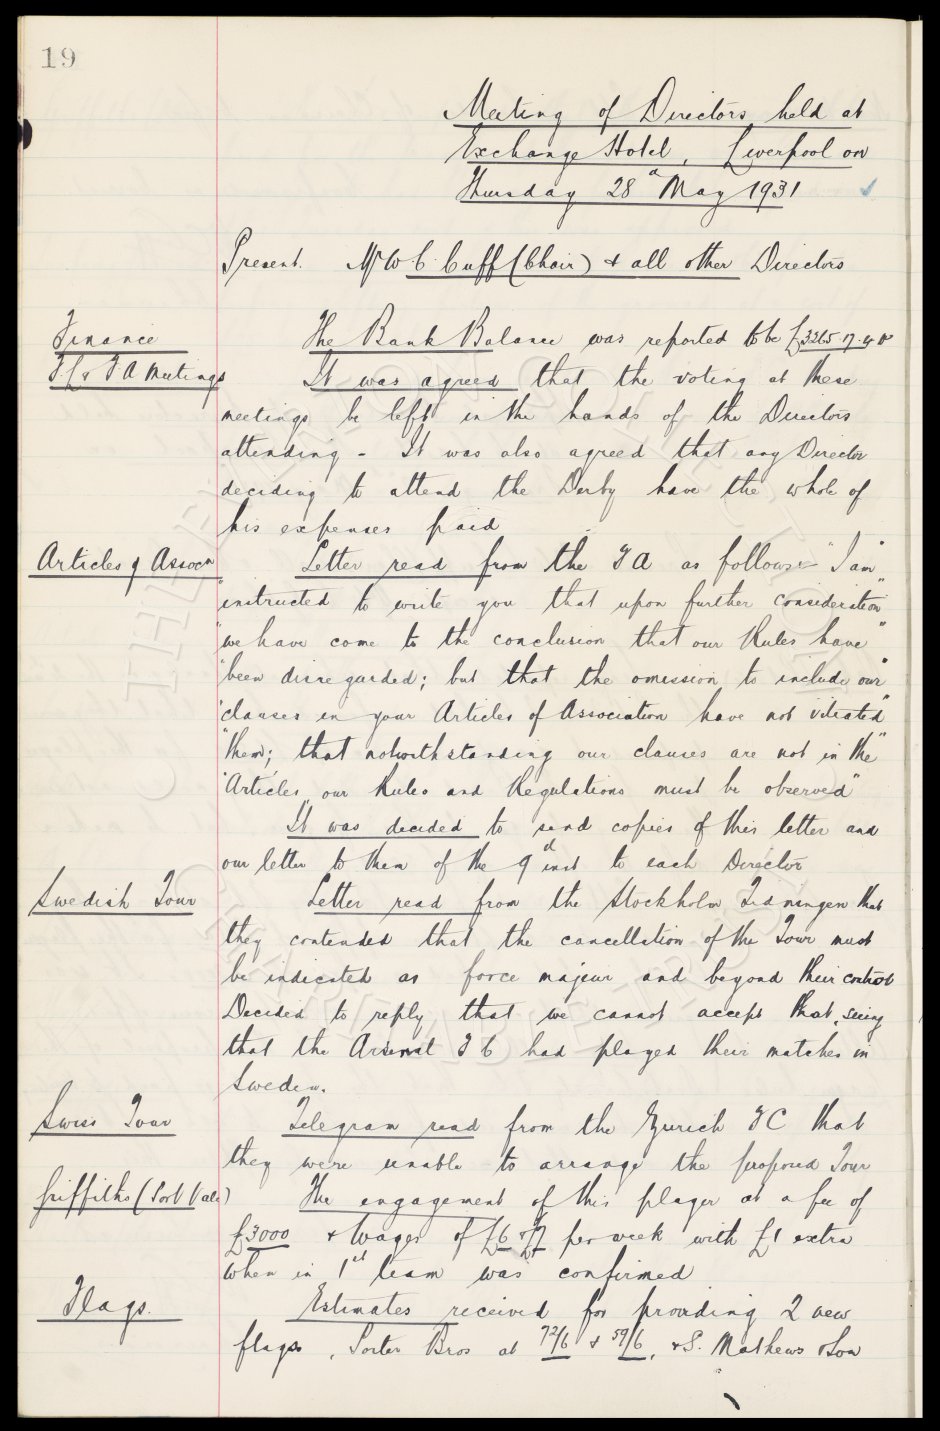 19
Meeting of Directors held at
Exchange Hotel, Liverpool on
Thursday 28th May 1931
Present. Mr W C Cuff (Chair) & all other Directors
Finance The Bank Balance was reported to be £3265-17-4
F L & F A Meetings It was agreed that the voting at these
meetings be left in the hands of the Directors
attending - It was also agreed that any Director
deciding to attend the Derby have the whole of
his expenses paid
Articles of Assocn Letter read from the F A as follows:- "I am"
"instructed to write you that upon further consideration"
"we have come to the conclusion that our Rules have"
"been disregarded; but that the omission to include our"
"clauses in your Articles of Association have not vitiated"
"them; that notwithstanding our clauses are not in the"
"Articles, our Rules and Regulations must be observed"
It was decided to send copies of this letter and
our letter to them of the 9th inst to each Director
Swedish Tour Letter read from the Stockholm Tidningen that
they contended that the cancellation of the Tour must
be indicated as force majeur and beyond their control
Decided to reply that we cannot accept that, seeing
that the Arsenal F C had played their matches in
Sweden.
Swiss Tour Telegram read from the Zurich F C that
they were unable to arrange the proposed Tour
Griffiths (Port Vale) The engagement of this player at a fee of
£3000 & Wages of £6 & £7 per week with £1 extra
when in 1st team was confirmed
Flags. Estimates received for providing 2 new
flags, Porter Bros at 72/6 & 59/6, & S. Mathews & Son